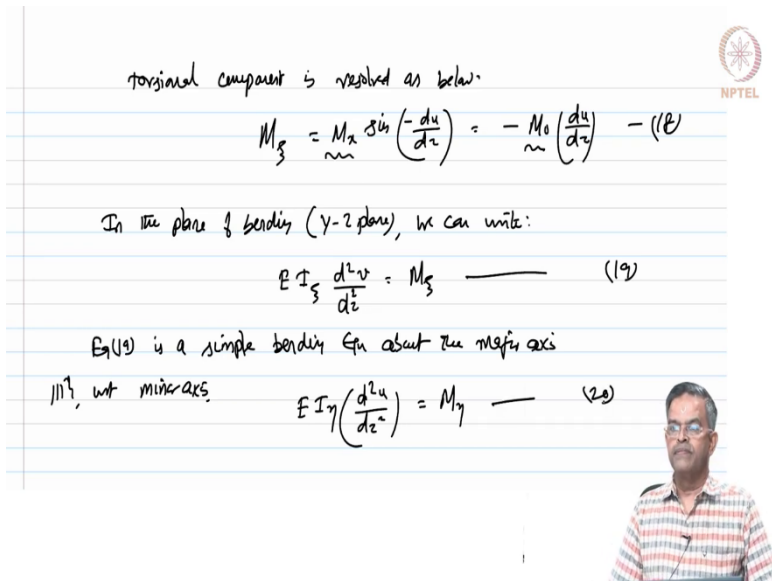 NPTEL
torsional component is resolved as below.
Mξ = Mx sin(-du/dz) = - M0 (du/dz) - (18)
In the plane of bending (y-z plane), we can write:
E Iξ d²v/dz² = Mξ — (19)
Eq(19) is a simple bending Eqn about the major axis
|||ly, wrt minor axis. E Iη (d²u/dz²) = Mη — (20)